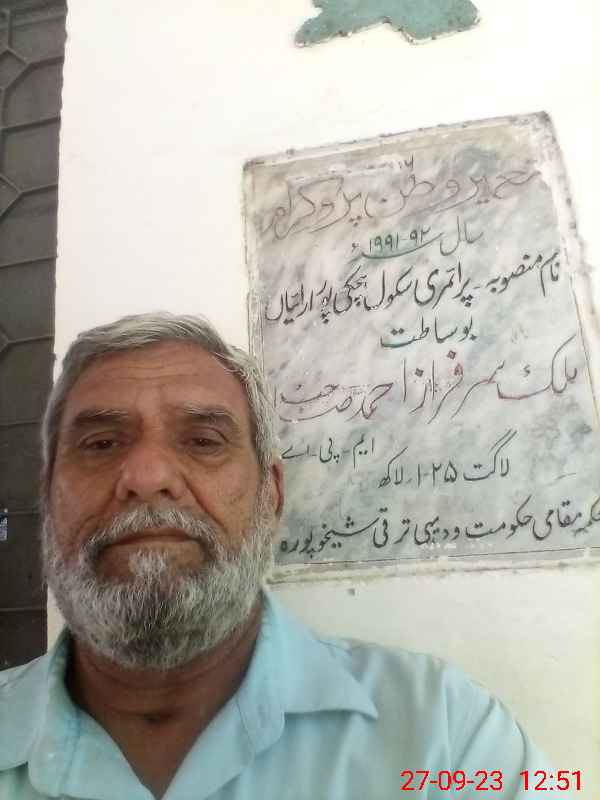 تعمیر وطن پروگرام
سال ۹۲-۱۹۹۱ء
نام منصوبہ - پرائمری سکول ہچکی پور ارائیاں
بوساطت
ملک سرفراز احمد صاحب
ایم - پی - اے
لاگت ۲۵-۱ لاکھ
محکمہ مقامی حکومت و دیہی ترقی شیخوپورہ
27-09-23 12:51